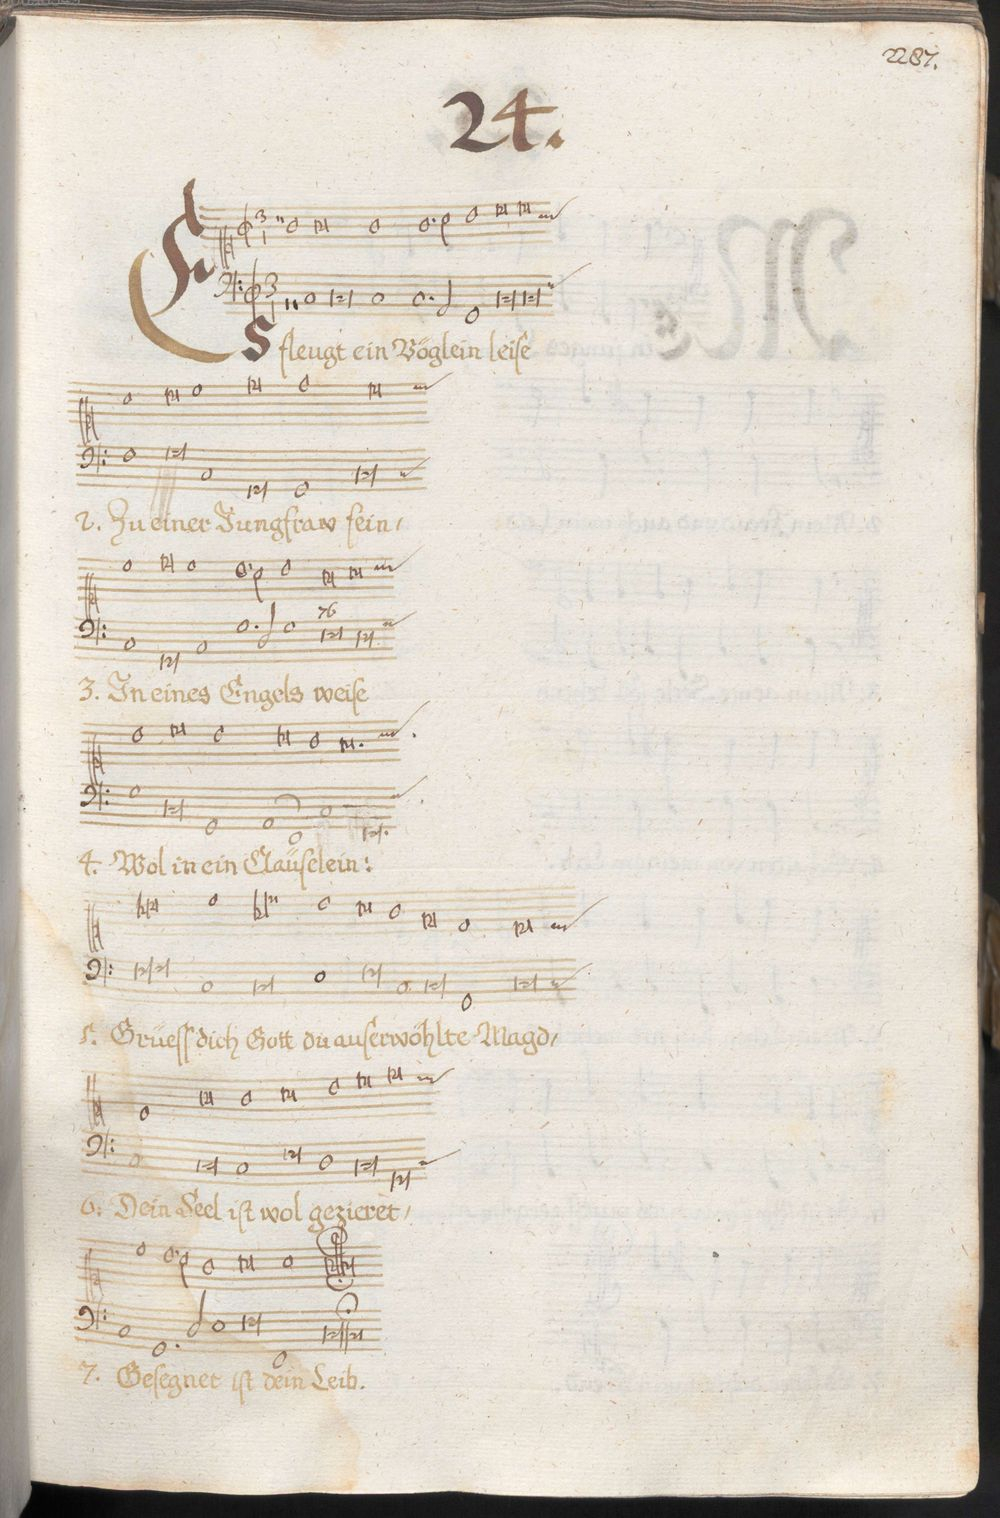 2287.
24.
Es fleugt ein Vöglein leise
2. Zu einer Jungfraw fein/
3. In eines Engels weise
76
4. Wol in ein Clauselein:
5. Grüess dich Gott du auserwöhlte Magd/
6. Dein Seel ist wol gezieret/
7. Gesegnet ist dein Leib.